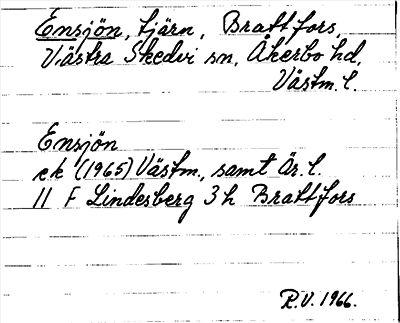 Ensjön, tjärn, Brattfors,
Västra Skedvi sn, Åkerbo hd,
Västm. l.
Ensjön
ek (1965) Västm., samt Är. l.
11 F Lindesberg 3 h Brattfors
R.V. 1966.